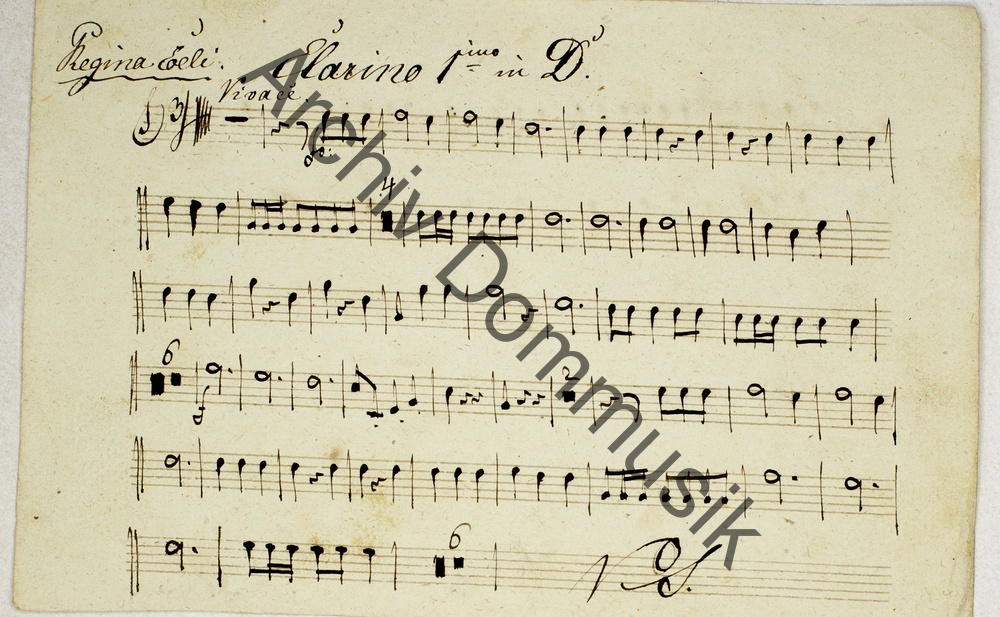 Regina Coeli.
Clarino 1mo in D.
Vivace
4
6
2
6
VS.
Archiv Dommusik